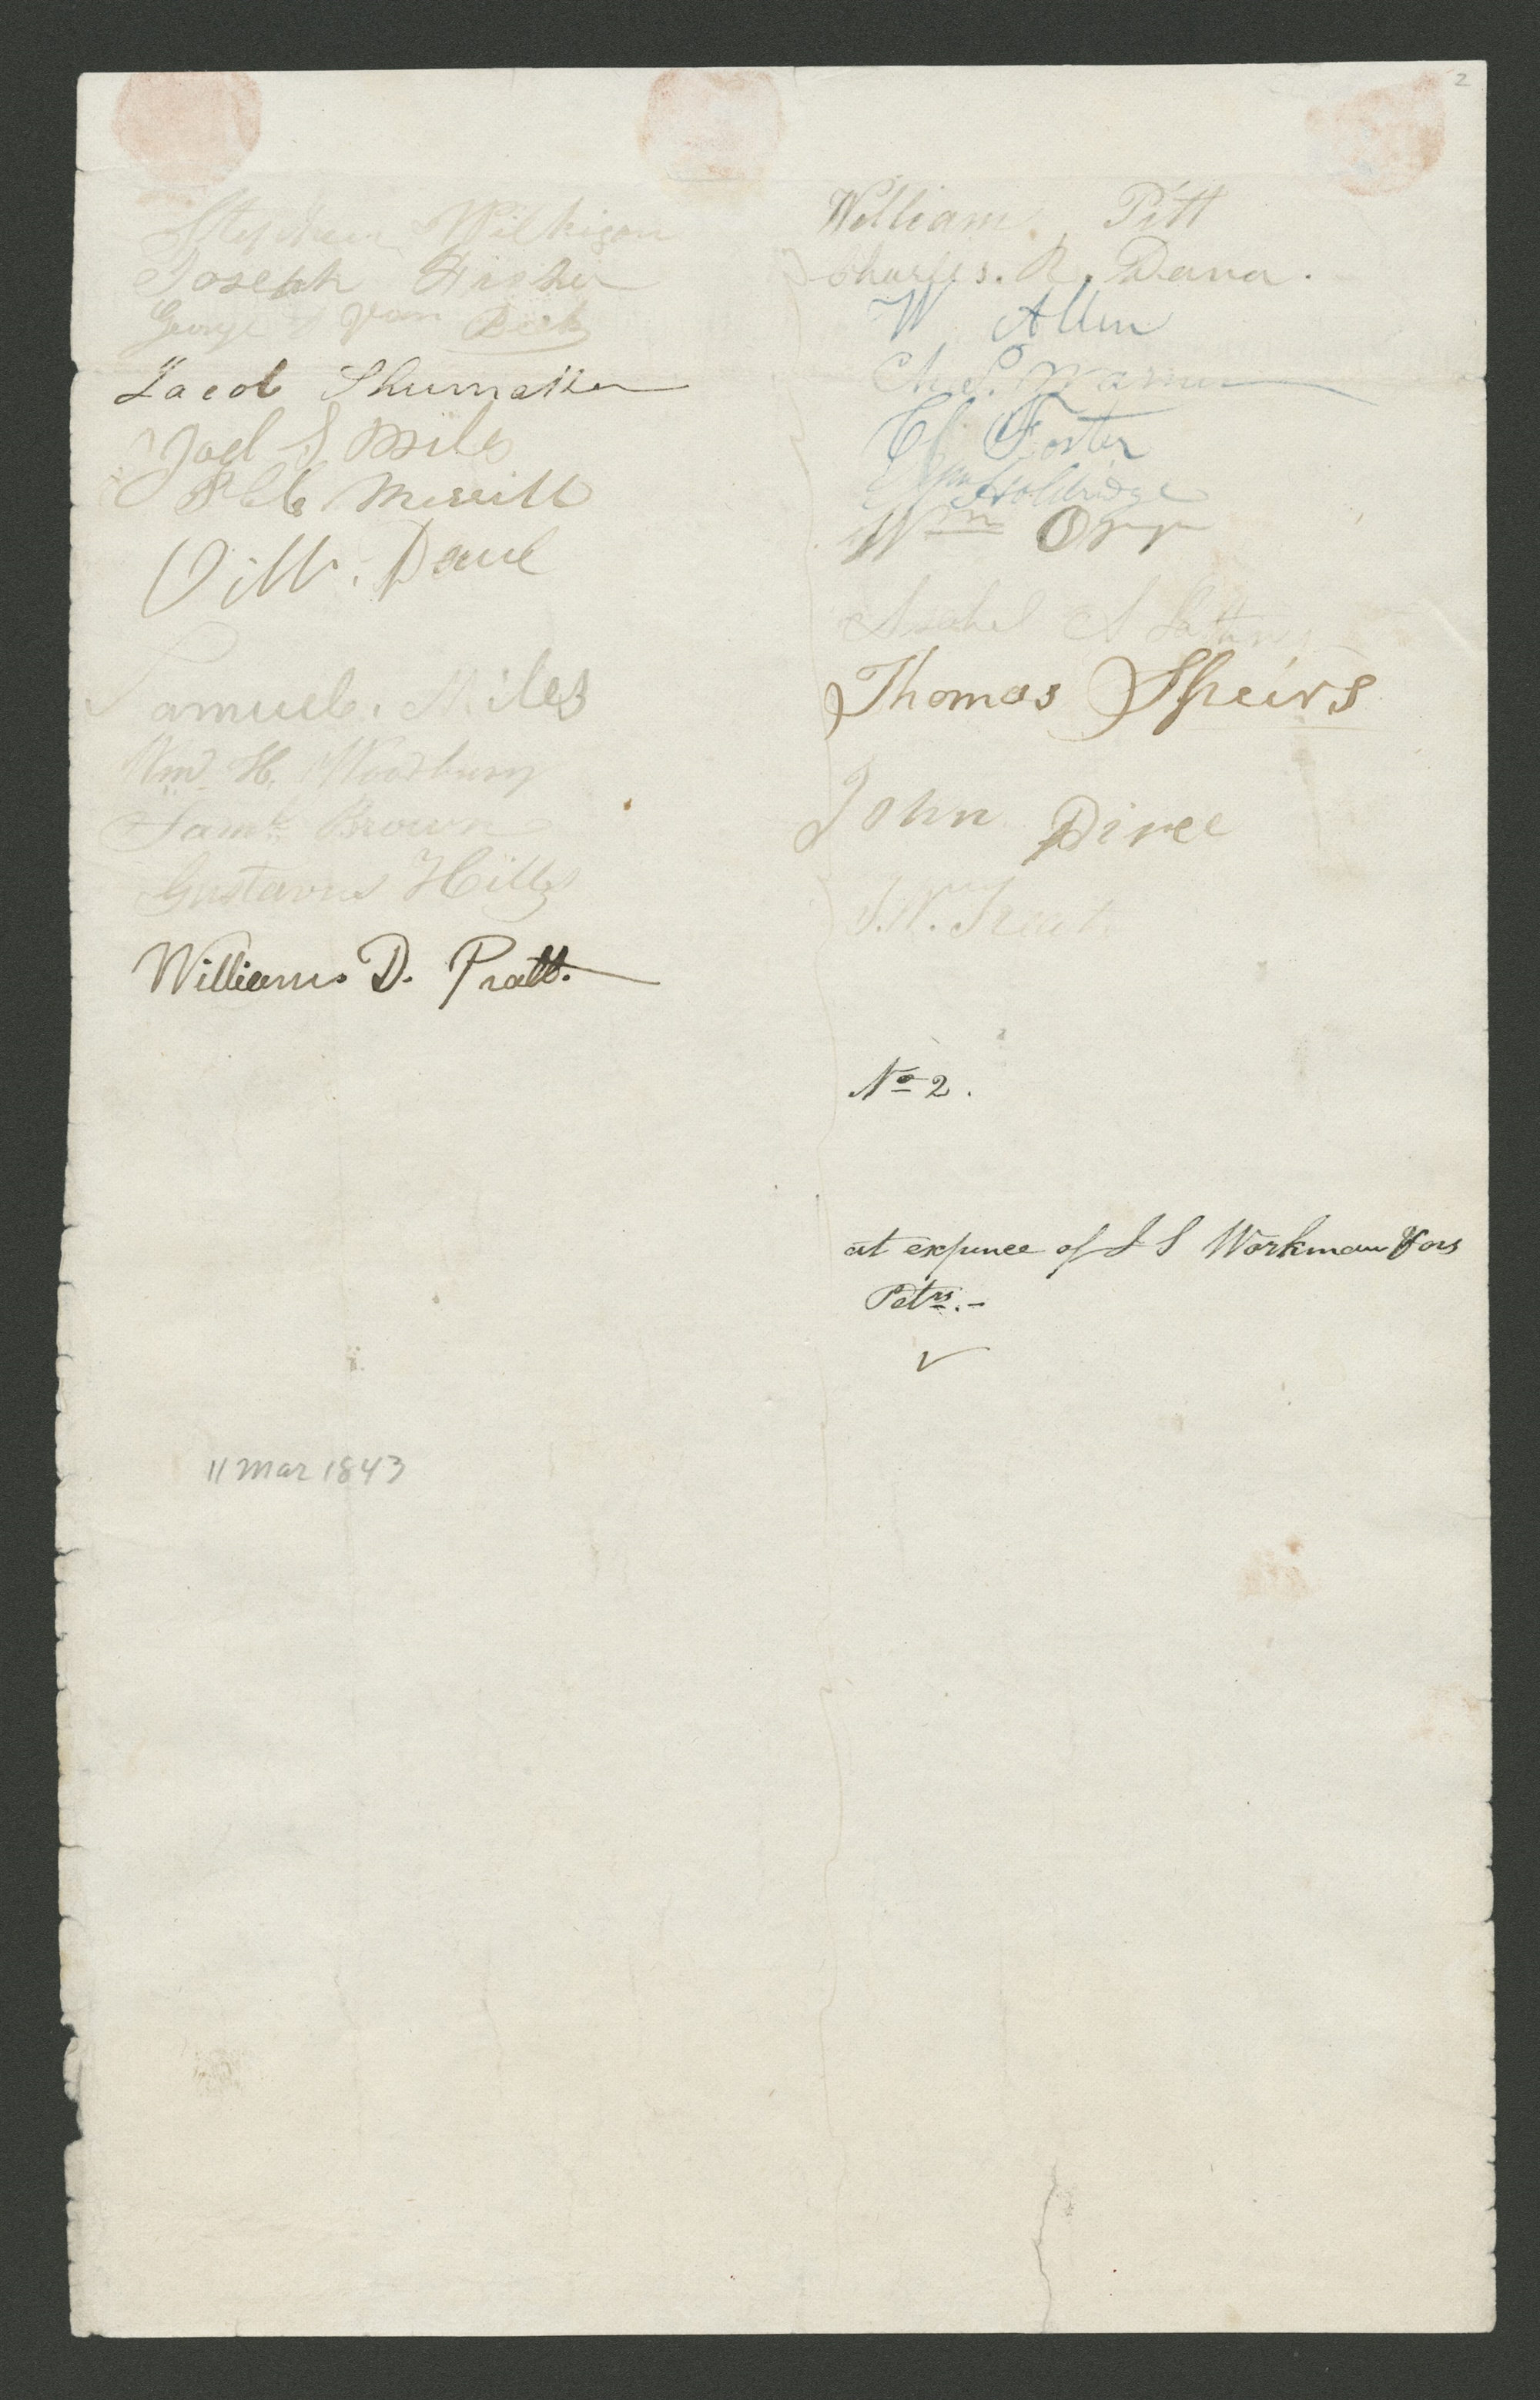 2
Stephen Wilkinson
Joseph Fisher
George Van Beek
Jacob Shumaker
Joel S Miles
P. C. Merrill
Samuel. Miles
Wm. H. Woodbury
Saml. Brown
Gustavus Hills
William D. Pratt.
William Pitt
Charles. R. Dana.
W Allen
Ch. S. Warner
Foster
Wm Holdridge
Wm Orr
A
Thomas Speirs
John Piree
S. W. Treat
No 2.
at expence of J S Workman & ors
Petrs. -
11 Mar 1843